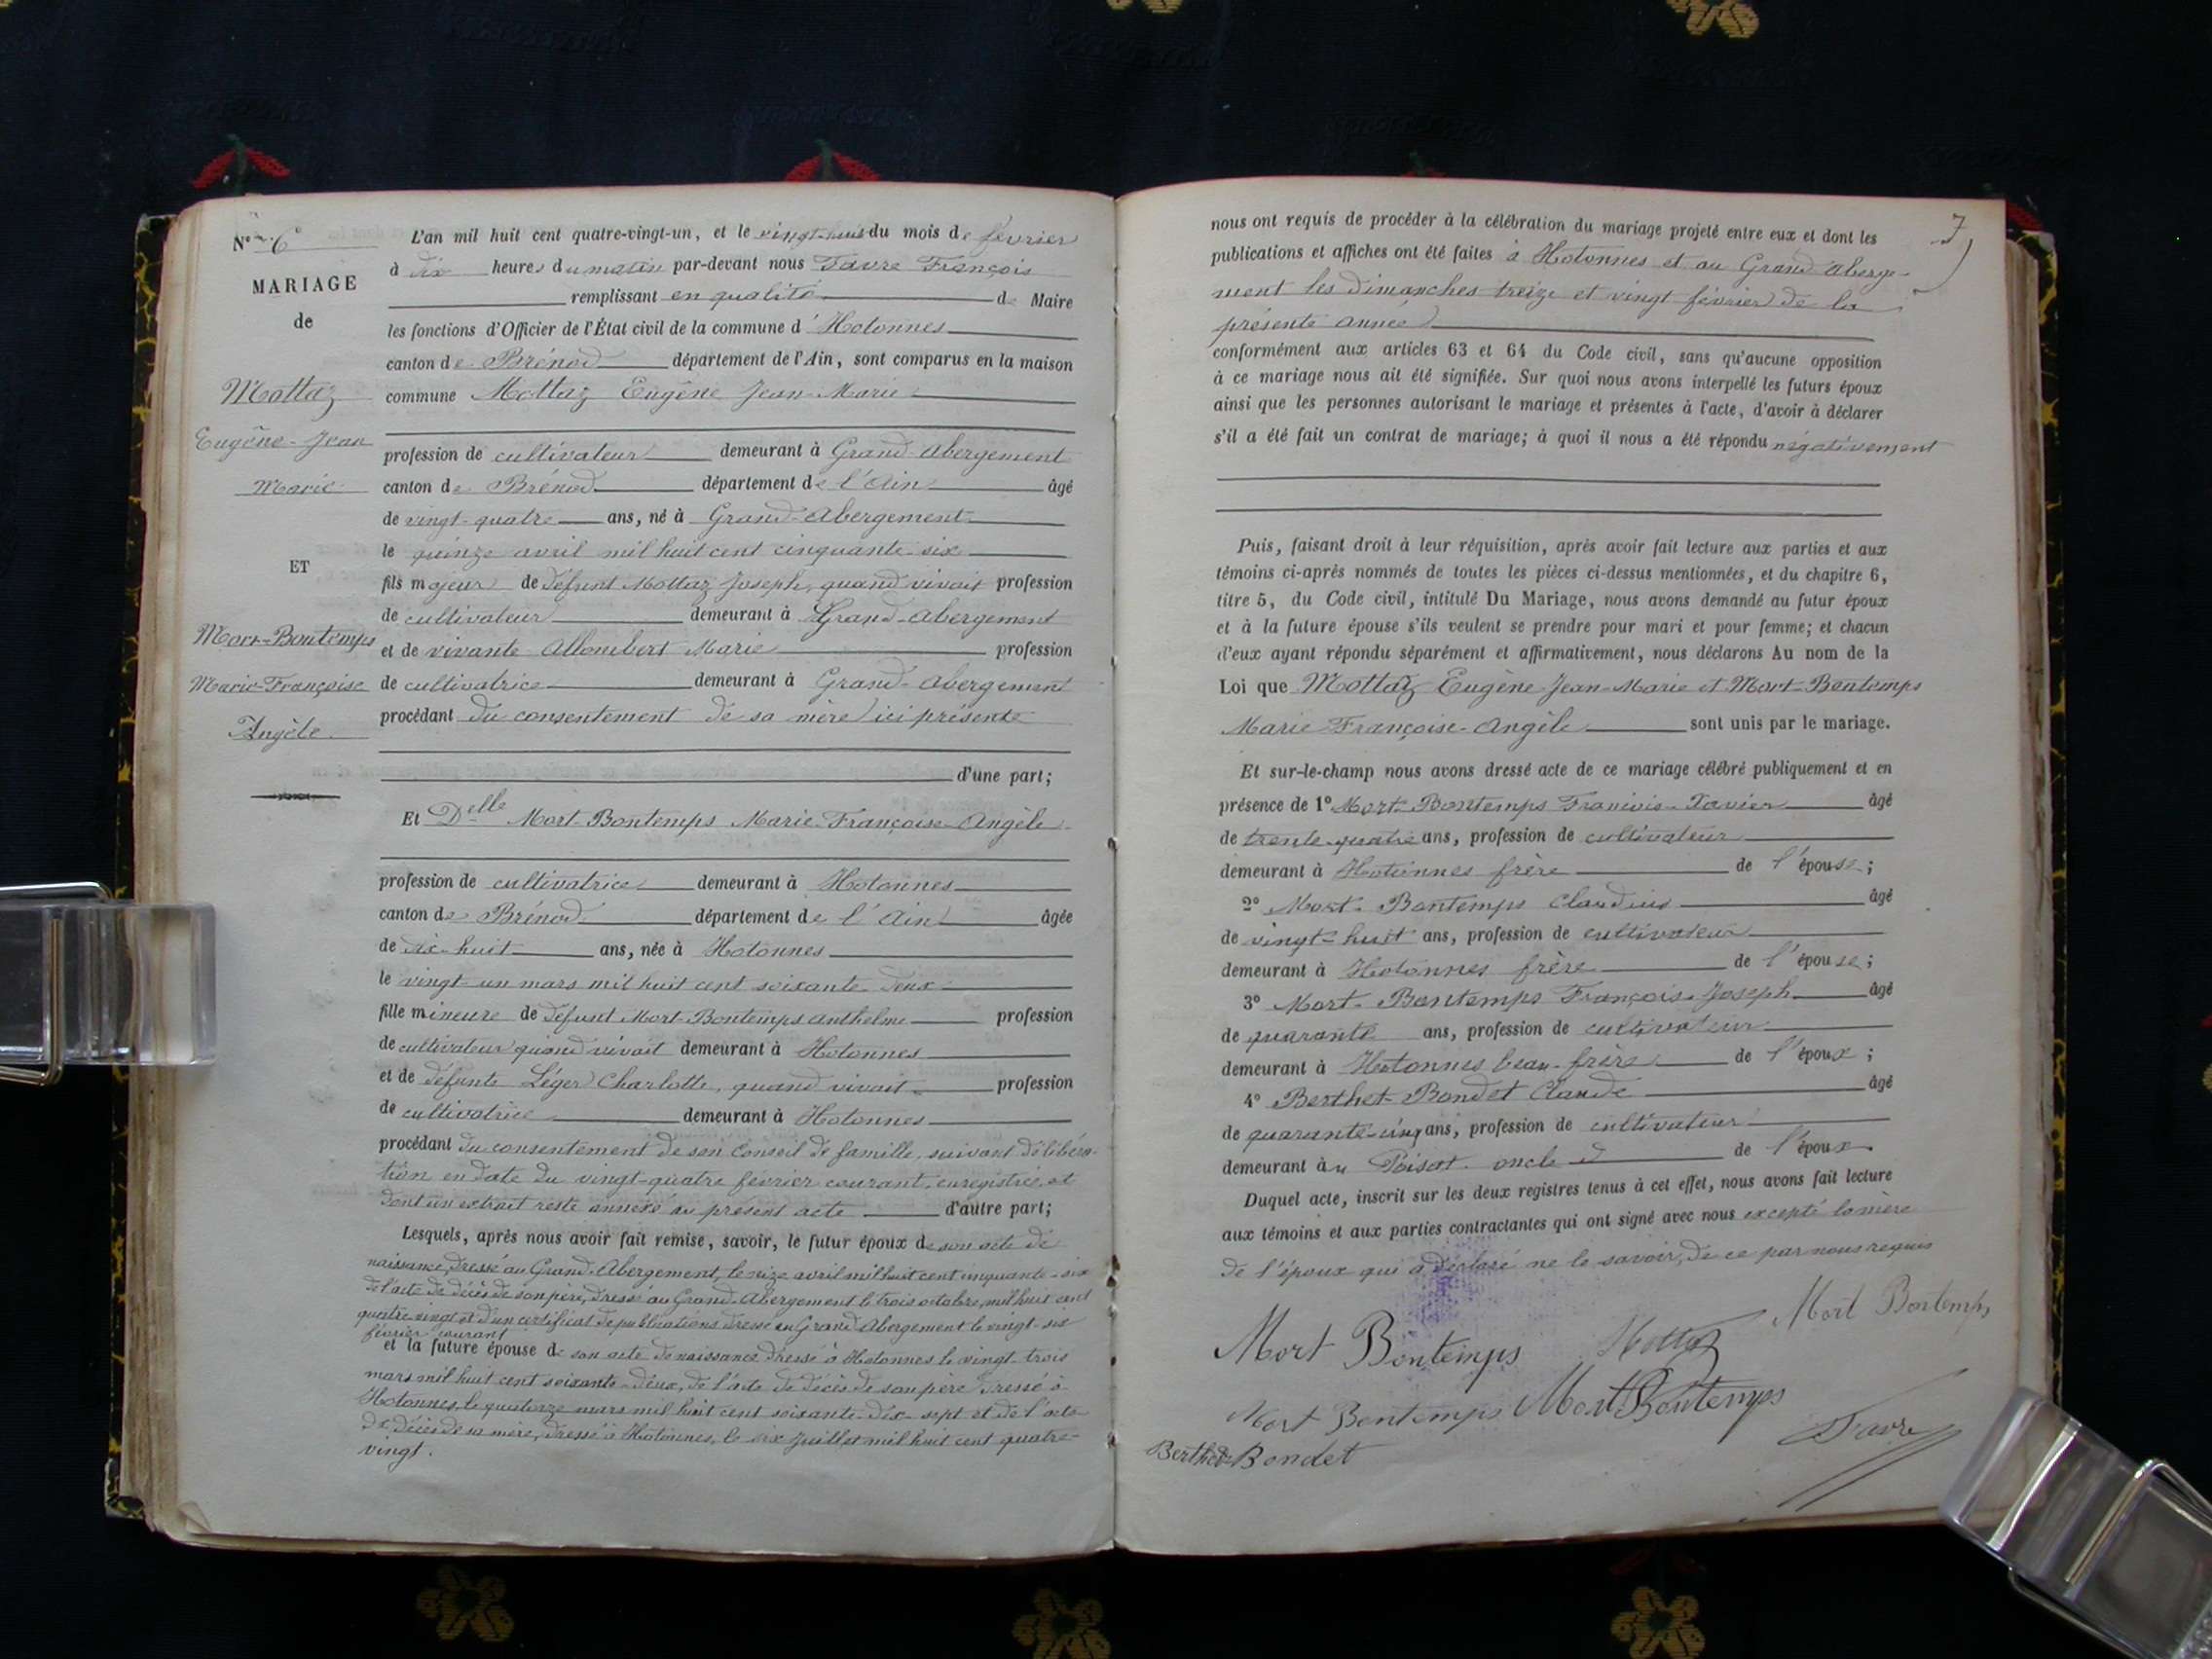 N° 6e
MARIAGE
de
Mottaz
Eugène-Jean
Marie
ET
Mort-Bontemps
Marie-Françoise
Angèle.
L'an mil huit cent quatre-vingt-un, et le vingt-huit du mois de février
à dix heures du matin par-devant nous Favre François
remplissant en qualité de Maire
les fonctions d'Officier de l'État civil de la commune d'Hotonnes
canton de Brénod département de l'Ain, sont comparus en la maison
commune Mottaz Eugène Jean-Marie
profession de cultivateur demeurant à Grand-Abergement
canton de Brénod département de l'Ain âgé
de vingt-quatre ans, né à Grand-Abergement
le quinze avril mil huit cent cinquante-six
fils majeur de défunt Mottaz Joseph, quand vivait profession
de cultivateur demeurant à Grand-Abergement
et de vivante Allombert Marie profession
de cultivatrice demeurant à Grand-Abergement
procédant du consentement de sa mère ici présente
d'une part;
Et Delle Mort-Bontemps Marie-Françoise-Angèle
profession de cultivatrice demeurant à Hotonnes
canton de Brénod département de l'Ain âgée
de dix-huit ans, née à Hotonnes
le vingt-un mars mil huit cent soixante-deux
fille mineure de défunt Mort-Bontemps Anthelme profession
de cultivateur quand vivait demeurant à Hotonnes
et de défunte Léger Charlotte, quand vivait profession
de cultivatrice demeurant à Hotonnes
procédant du consentement de son Conseil de famille, suivant délibéra-
tion en date du vingt-quatre février courant, enregistrée, et
dont un extrait reste annexé au présent acte d'autre part;
Lesquels, après nous avoir fait remise, savoir, le futur époux de son acte de
naissance, dressé au Grand-Abergement, le seize avril mil huit cent cinquante-six
de l'acte de décès de son père, dressé au Grand-Abergement le trois octobre, mil huit cent
quatre-vingt et d'un certificat de publications dressé au Grand Abergement le vingt-six
février courant
et la future épouse de son acte de naissance dressé à Hotonnes le vingt-trois
mars mil huit cent soixante-deux, de l'acte de décès de son père dressé à
Hotonnes, le quatorze mars mil huit cent soixante-dix-sept et de l'acte
de décès de sa mère, dressé à Hotonnes, le six Juillet mil huit cent quatre-
vingt.
7
nous ont requis de procéder à la célébration du mariage projeté entre eux et dont les
publications et affiches ont été faites à Hotonnes et au Grand Aberge-
ment les dimanches treize et vingt février de la
présente année
conformément aux articles 63 et 64 du Code civil, sans qu'aucune opposition
à ce mariage nous ait été signifiée. Sur quoi nous avons interpellé les futurs époux
ainsi que les personnes autorisant le mariage et présentes à l'acte, d'avoir à déclarer
s'il a été fait un contrat de mariage; à quoi il nous a été répondu négativement
Puis, faisant droit à leur réquisition, après avoir fait lecture aux parties et aux
témoins ci-après nommés de toutes les pièces ci-dessus mentionnées, et du chapitre 6,
titre 5, du Code civil, intitulé Du Mariage, nous avons demandé au futur époux
et à la future épouse s'ils veulent se prendre pour mari et pour femme; et chacun
d'eux ayant répondu séparément et affirmativement, nous déclarons Au nom de la
Loi que Mottaz Eugène-Jean-Marie et Mort-Bontemps
Marie Françoise-Angèle sont unis par le mariage.
Et sur-le-champ nous avons dressé acte de ce mariage célébré publiquement et en
présence de 1° Mort-Bontemps Franicois-Xavier âgé
de trente-quatre ans, profession de cultivateur
demeurant à Hotonnes frère de l'épouse;
2° Mort-Bontemps Claudius âgé
de vingt-huit ans, profession de cultivateur
demeurant à Hotonnes frère de l'épouse;
3° Mort-Bontemps François-Joseph âgé
de quarante ans, profession de cultivateur
demeurant à Hotonnes beau-frère de l'époux;
4° Berthet-Bondet Claude âgé
de quarante-cinq ans, profession de cultivateur
demeurant au Poisat oncle de l'époux
Duquel acte, inscrit sur les deux registres tenus à cet effet, nous avons fait lecture
aux témoins et aux parties contractantes qui ont signé avec nous excepté la mère
de l'époux qui a déclaré ne le savoir, de ce par nous requis
Mort Bontemps Mottaz Mort Bontemps
Mort Bontemps Mort Bontemps
Favre
Berthet-Bondet